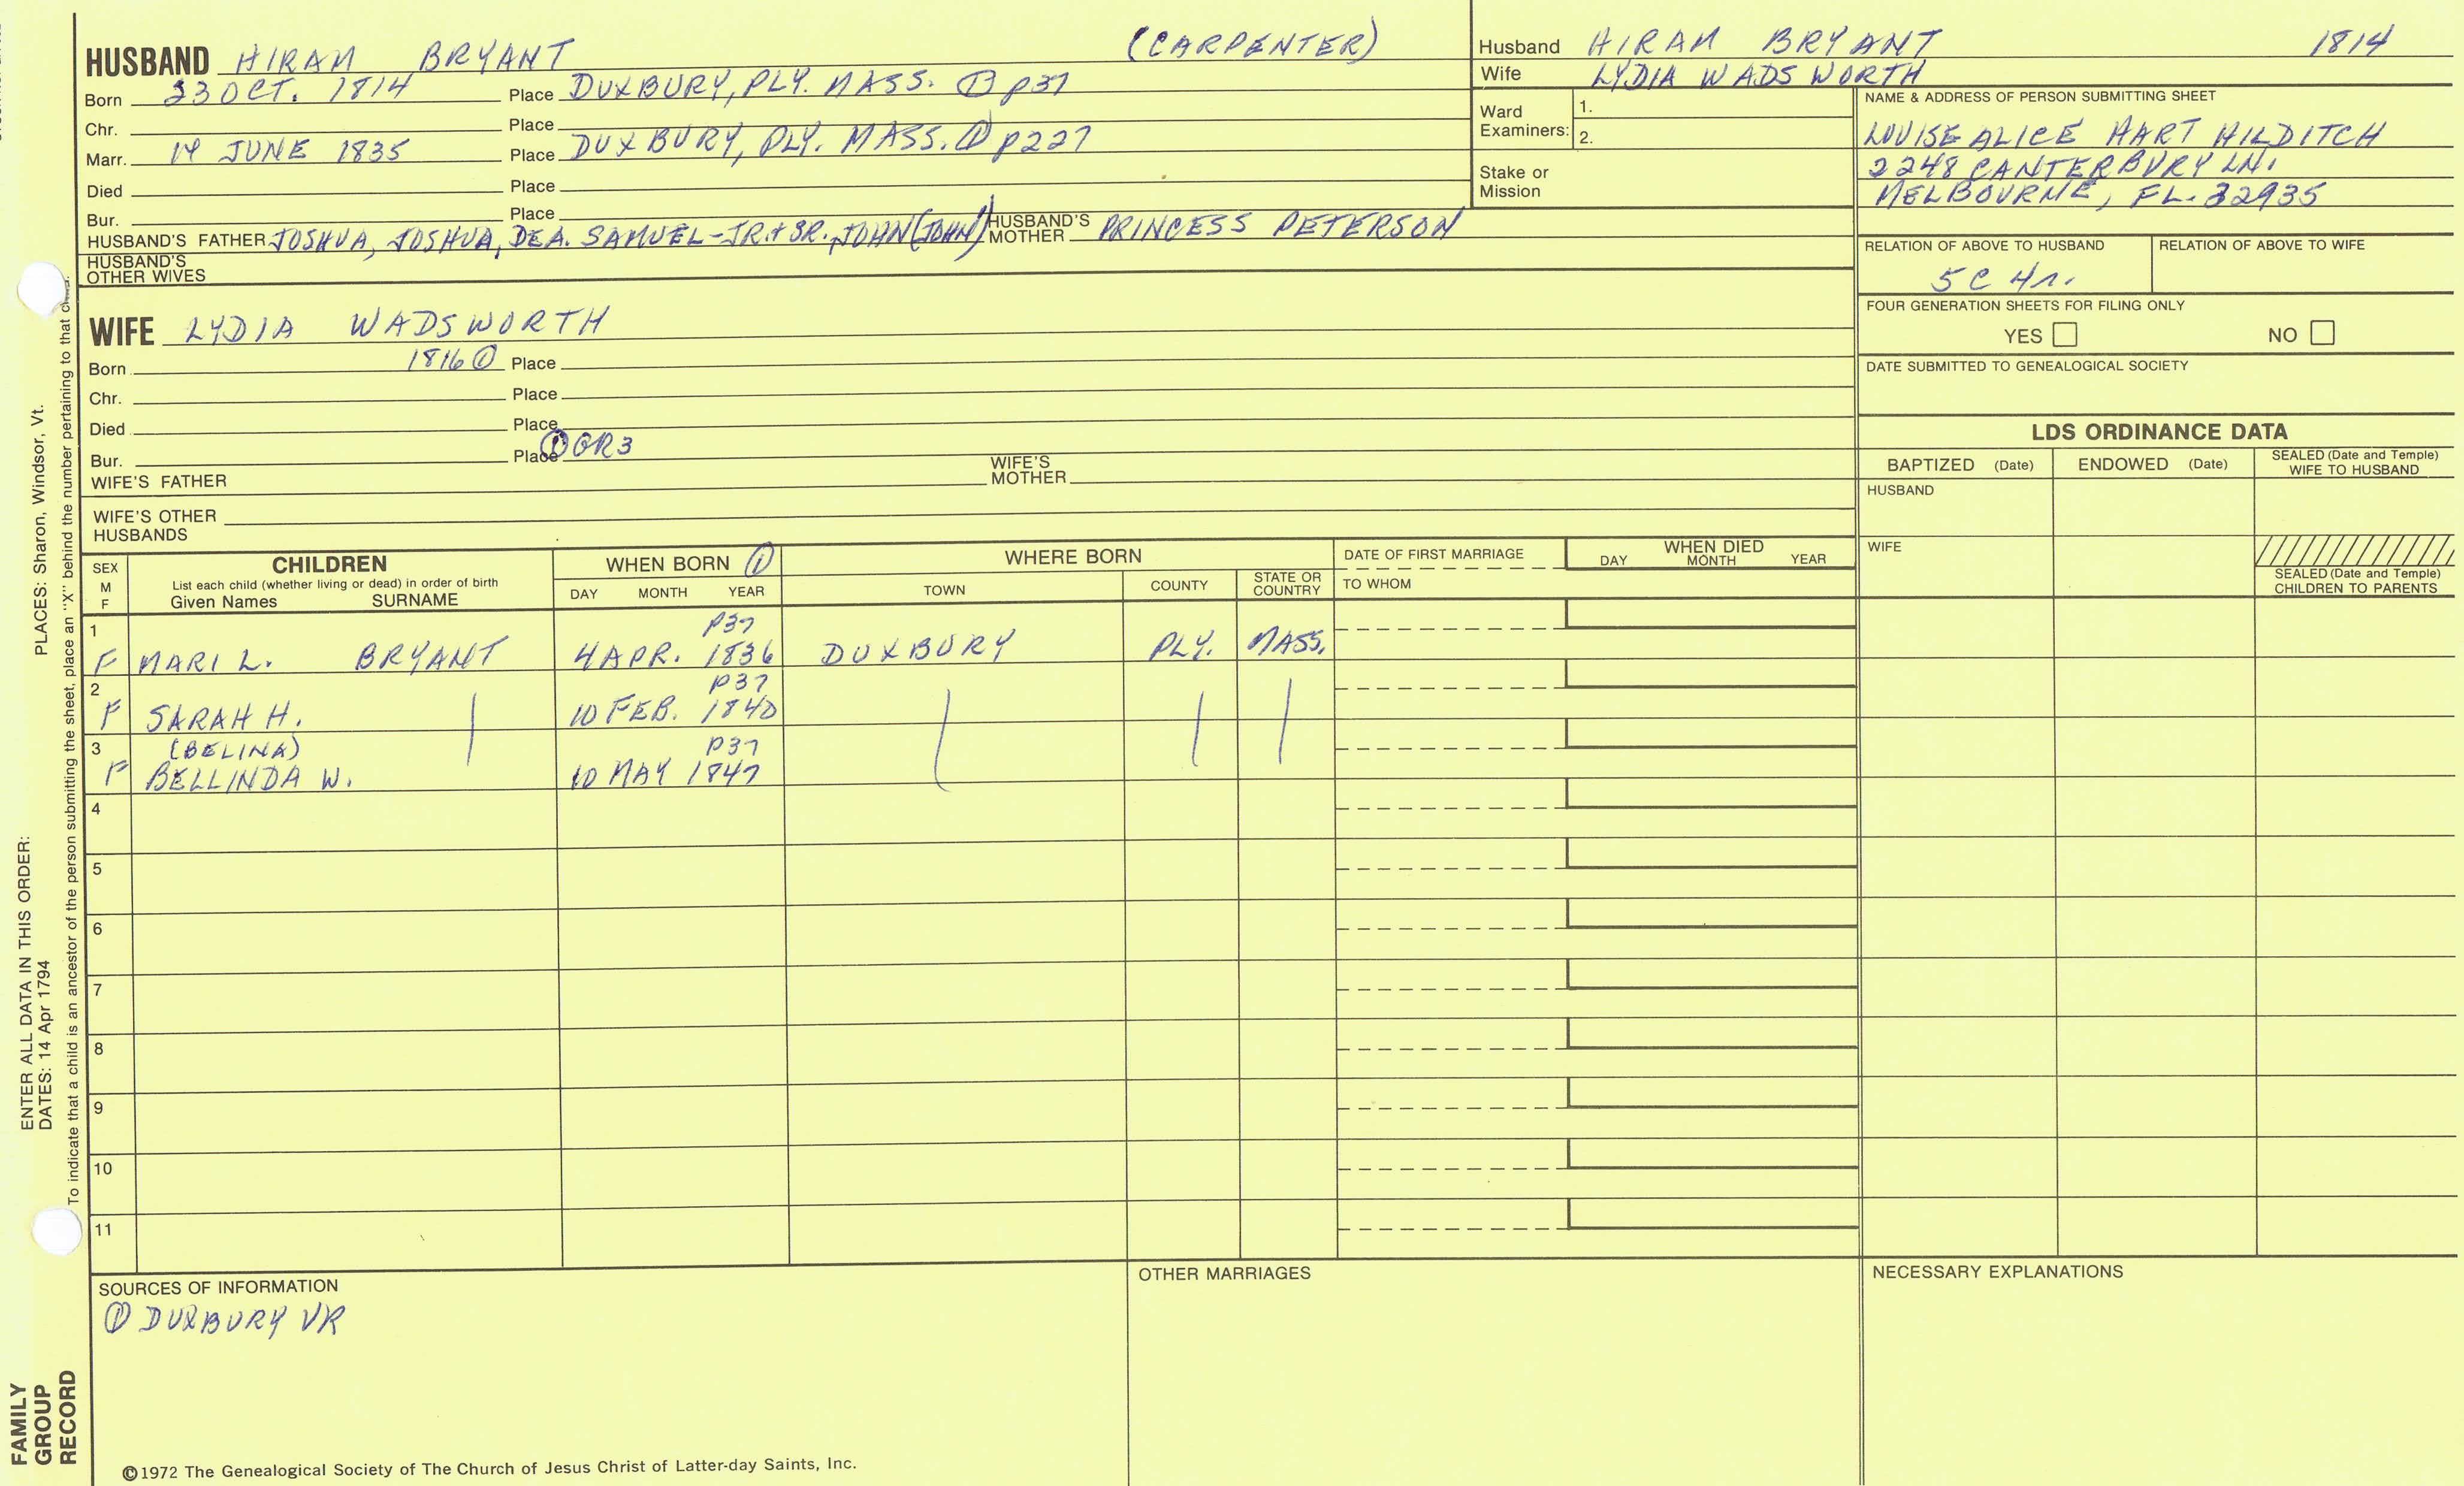 HUSBAND HIRAM BRYANT (CARPENTER)
Born 23 OCT. 1814 Place DUXBURY, PLY. MASS. ① p37
Chr. Place
Marr. 14 JUNE 1835 Place DUXBURY, PLY. MASS. ① p227
Died Place
Bur. Place
HUSBAND'S FATHER JOSHUA, JOSHUA, DEA. SAMUEL-JR.+SR. JOHN (JOHN) HUSBAND'S MOTHER PRINCESS PETERSON
HUSBAND'S OTHER WIVES
Husband HIRAM BRYANT 1814
Wife LYDIA WADSWORTH
Ward Examiners: 1.
2.
Stake or Mission
NAME & ADDRESS OF PERSON SUBMITTING SHEET
LOUISE ALICE HART HILDITCH
2248 CANTERBURY LN.
MELBOURNE, FL. 32935
RELATION OF ABOVE TO HUSBAND RELATION OF ABOVE TO WIFE
5C 4r.
FOUR GENERATION SHEETS FOR FILING ONLY
YES NO
DATE SUBMITTED TO GENEALOGICAL SOCIETY
WIFE LYDIA WADSWORTH
Born 1816 ① Place
Chr. Place
Died Place
Bur. Place ① GR3
WIFE'S FATHER WIFE'S MOTHER
WIFE'S OTHER HUSBANDS
LDS ORDINANCE DATA
BAPTIZED (Date) ENDOWED (Date) SEALED (Date and Temple) WIFE TO HUSBAND
HUSBAND
WIFE
SEALED (Date and Temple) CHILDREN TO PARENTS
SEX M F CHILDREN WHEN BORN ① WHERE BORN DATE OF FIRST MARRIAGE WHEN DIED
List each child (whether living or dead) in order of birth
Given Names SURNAME DAY MONTH YEAR TOWN COUNTY STATE OR COUNTRY TO WHOM DAY MONTH YEAR
1 P37
F MARI L. BRYANT 4 APR. 1836 DUXBURY PLY. MASS.
2 P37
F SARAH H. 10 FEB. 1840
3 (BELINA) P37
F BELLINDA W. 10 MAY 1847
4
5
6
7
8
9
10
11
SOURCES OF INFORMATION
① DUXBURY VR
OTHER MARRIAGES
NECESSARY EXPLANATIONS
©1972 The Genealogical Society of The Church of Jesus Christ of Latter-day Saints, Inc.
FAMILY
GROUP
RECORD
ENTER ALL DATA IN THIS ORDER:
DATES: 14 Apr 1794 PLACES: Sharon, Windsor, Vt.
To indicate that a child is an ancestor of the person submitting the sheet, place an "X" behind the number pertaining to that child.